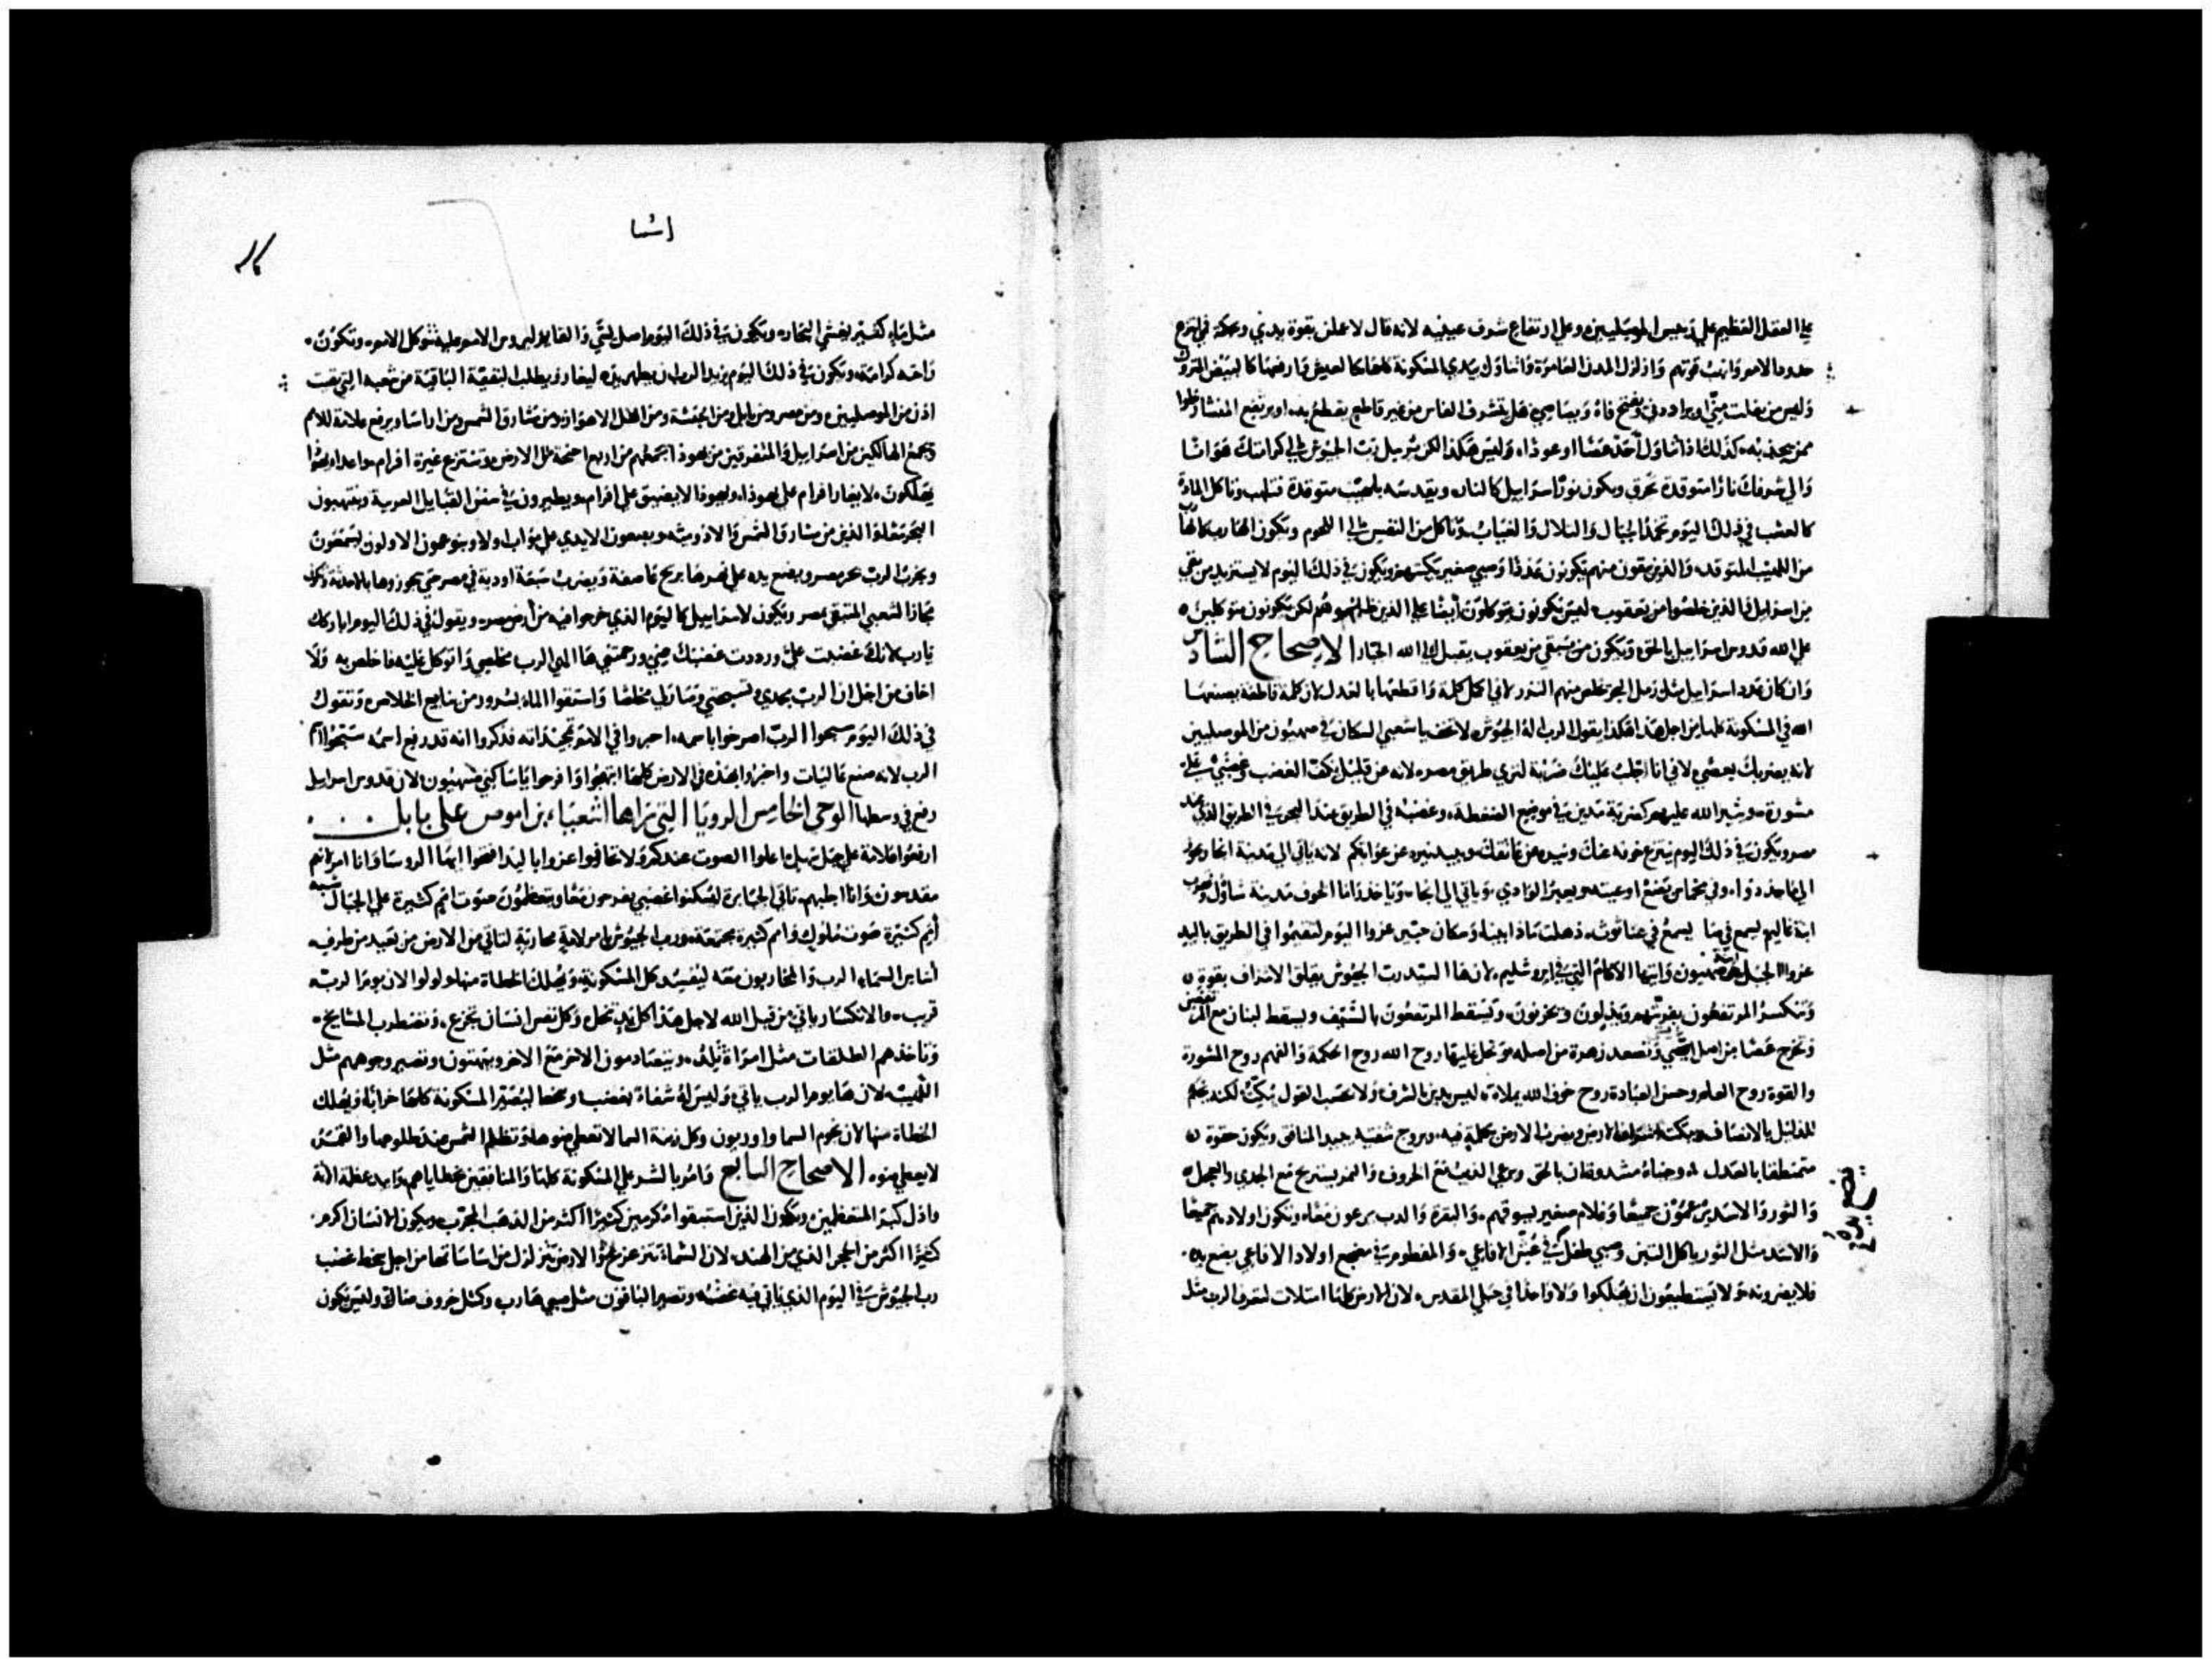 علي العقل العظيم علي رييس الموصليين وعلي ارتفاع شرف عينيه لانه قال لاعلن بقوة يدي وبحكمة فهمي انتزع
حدود الامم وانهب قوتهم وازلزل المدن العامرة واتناول بيدي المسكونة كلها كالعيش وارفعها كالبيض المتروك
وليس من يفلت مني او يرادني ويفتح فاه
كذلك اذا تناول احد عصا او عودا وليس هكذا لكن يرسل رب الجيوش الي كرامتك هوانا
والي شرفك نارا متوقدة تحرق ويكون نور اسراييل كالنار ويقدسه بلهيب متوقدة فتلهب وتاكل المادة
كالعشب في ذلك اليوم تخمد الجبال والتلال والغياب وتاكل من النفس الي اللحوم ويكون الهارب كالهارب
من اللهيب المتوقد والذين يبقون منهم يكونون عددا وصبي صغير يكتبهم ويكون في ذلك اليوم لا يستزيد من بقي
من اسراييل والذين خلصوا من يعقوب ليس يكونون متوكلون ايضا علي الذين ظلموهم لكن يكونون متوكلين
علي الله قدوس اسراييل بالحق ويكون من تبقي من يعقوب يقبل الي الله الجبار الاصحاح السادس
وان كان عدد اسراييل مثل رمل البحر تخلص منهم النزر لاني اكمل كلمة واقطعها بالعدل لان كلمة قاطعة يصنعها
الله في المسكونة كلها من اجل هذا هكذا يقول الرب اله الجيوش لا تخف يا شعبي السكان في صهيون من الموصليين
لانه يضربك بعصي لاني انا اجلب عليك ضربة لتري طريق مصر لانه عن قليل يكف الغضب وغضبي علي
مشورة ويثير الله عليهم كضربة مدين في موضع الضغطة وغضبه في الطريق عند البحر في الطريق الذي عند
مصر ويكون في ذلك اليوم ينتزع خوفه عنك ونيره عن عاتقك ويبيد نيره عن عواتقكم لانه ياتي الي مدينة انجا ويجوز
الي مجدو وفي مخماس يضع اوعيته ويعبر الوادي وياتي الي انجا وياخذ راما الخوف مدينة شاول وتهرب
ابنة غاليم يسمع في عناثوث
عزوا الجبل ابنة صهيون وايتها الاكام التي في ايروشليم لان ها السيد رب الجيوش يقلق الاشراف بقوة
وتنكسر المرتفعون بفريتهم ويذلون ويحزنون ويسقط المرتفعون بالسيف ويسقط لبنان مع المرتفعين
وتخرج عصا من اصل يسي وتصعد زهرة من اصله وتحل عليها روح الله روح الحكمة والفهم روح المشورة
والقوة روح العلم وحسن العبادة روح خوف الله يملاه ليس يدين بالشرف ولا بحسب القول يبكت لكنه يحكم
للذليل بالانصاف ويبكت اشراف الارض ويضرب الارض بكلمة فيه وبروح شفتيه يبيد المنافق ويكون حقوه
متمنطقا بالعدل وجنباه مشدودتان بالحق ويرعي الذيب مع الخروف والنمر يستريح مع الجدي والعجل
والثور والاسد يرعون جميعا وغلام صغير يسوقهم والبقرة والدب يرعون معا وتكون اولادهم جميعا
والاسد مثل الثور ياكل التبن وصبي طفل في عش الافاعي والمفطوم في مضجع اولاد الافاعي يضع يده
فلا يضرونه ولا يستطيعون ان يهلكوا ولا واحدا في جبلي المقدس لان الارض كلها امتلات لتعرف الرب مثل
اشعيا
مثل ماء كثير يغشي البحار ويكون في ذلك اليوم اصل يسي والقايم ليروس الامم عليه تتوكل الامم وتكون
راحته كرامة ويكون في ذلك اليوم يزيد الرب ان يظهر يده ليغار ويطلب لبقية الباقية من شعبه التي بقيت
اذن من الموصليين ومن مصر ومن بابل ومن الحبشة ومن اهل الاهواز ومن مشارق الشمس ومن ارابيا ويرفع علامة للامم
ويجمع الهالكين من اسراييل والمتفرقين من يهوذا يجمعهم من اربع اجنحة الارض وتنتزع غيرة افرام واعدا يهوذا
يهلكون لا يغار افرام علي يهوذا ويهوذا لا يضيق علي افرام ويطيرون في سفن القبايل الغريبة وينتهبون
البحر معا والذين من مشارق الشمس والادومية ويضعون الايدي علي مواب اولا وبنو عمون الاولون يسمعون
ويخرب الرب بحر مصر ويضع يده علي نهرها بريح عاصفة ويضرب سبعة اودية في مصر حتي يجوزوها بالاحذية ويكون
مجازا لشعبي المتبقي بمصر ويكون لاسراييل كاليوم الذي خرجوا فيه من ارض مصر ويقول في ذلك اليوم اباركك
يا رب لانك غضبت علي ورددت غضبك عني ورحمتني ها الهي الرب مخلصي واتوكل عليه فاخلص به ولا
اخاف من اجل ان الرب مجدي وتسبحتي وصار لي مخلصا واستقوا الماء بسرور من ينابيع الخلاص وتقول
في ذلك اليوم سبحوا الرب اصرخوا باسمه اخبروا في الامم تمجيداته فذكروا انه قد رفع اسمه سبحوا اسم
الرب لانه صنع عاليات واخبروا بهذه في الارض كلها ابتهجوا وافرحوا يا ساكني صهيون لان قدوس اسراييل
رفع في وسطها الوحي الخامس الرويا التي نراها اشعيا بن اموص علي بابل
ارفعوا علامة علي جبل سهل اعلوا الصوت عندكم ولا تخافوا عزوا باليد افتحوا ايها الروسا وانا امرتهم
مقدسون وانا اجلبهم تاتي الجبابرة لتسكنوا غضبي يفرحون معا ويتعظمون صوت امم كثيرة علي الجبال شبيه
امم كثيرة صوت ملوك وامم كثيرة مجتمعة ورب الجيوش امر لامة محاربة لتاتي من الارض من بعيد من طرف
اساس السماء الرب والمحاربون معه ليفسد كل المسكونة ويهلك الخطاة منها ولولوا لان يوم الرب
قريب والانكسار ياتي من قبل الله لاجل هذا كل يد تنحل وكل نفس انسان تجزع وتضطرب المشايخ
وتاخذهم الطلقات مثل امراة تلد ويتصادمون الاخر مع الاخر ويبهتون وتصير وجوههم مثل
اللهيب لان ها يوم الرب ياتي وليس له شفاة بغضب وسخط ليصير المسكونة كلها خرابا ويهلك
الخطاة منها لان نجوم السما واوريون وكل زينة السما لا تعطي ضوها وتظلم الشمس عند طلوعها والقمر
لا يعطي ضوه الاصحاح السابع وامر بالشر علي المسكونة كلها والمنافقين خطاياهم وابيد عظمة الاثمة
واذل كبر المتعظمين ويكون الذين استبقوا مكرمين كثيرا اكثر من الذهب المجرب ويكون الانسان اكرم
كثيرا اكثر من الحجر الذي من الهند لان السماء تتزعزع والارض تتزلزل من اساساتها من اجل سخط غضب
رب الجيوش في اليوم الذي ياتي فيه غضبه وتصير الباقون مثل صبي هارب وكمثل خروف ضال وليس يكون